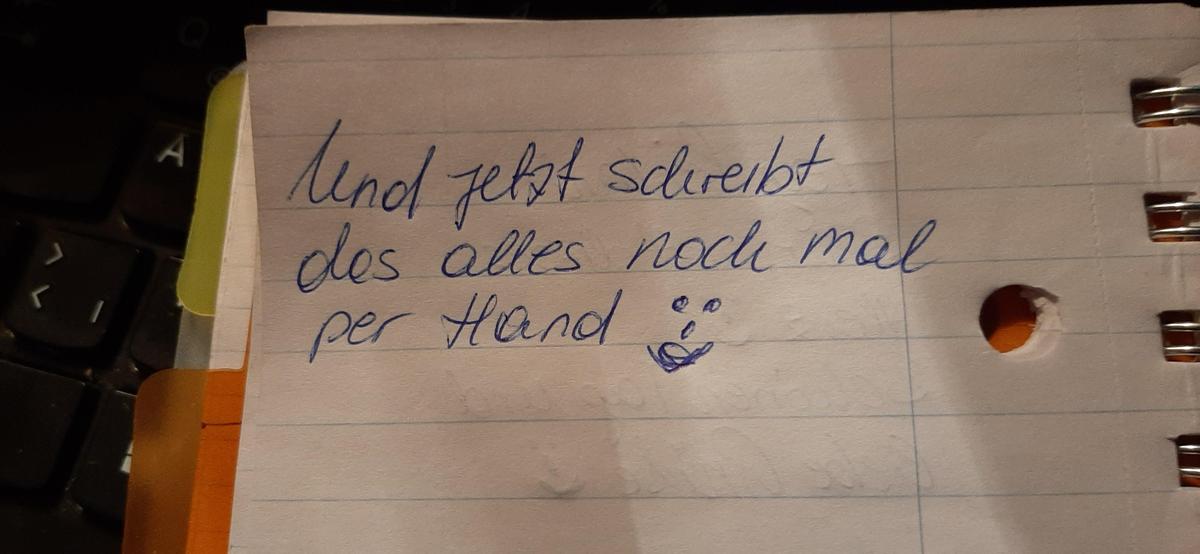 Und jetzt schreibt
das alles noch mal
per Hand
A
>
< |